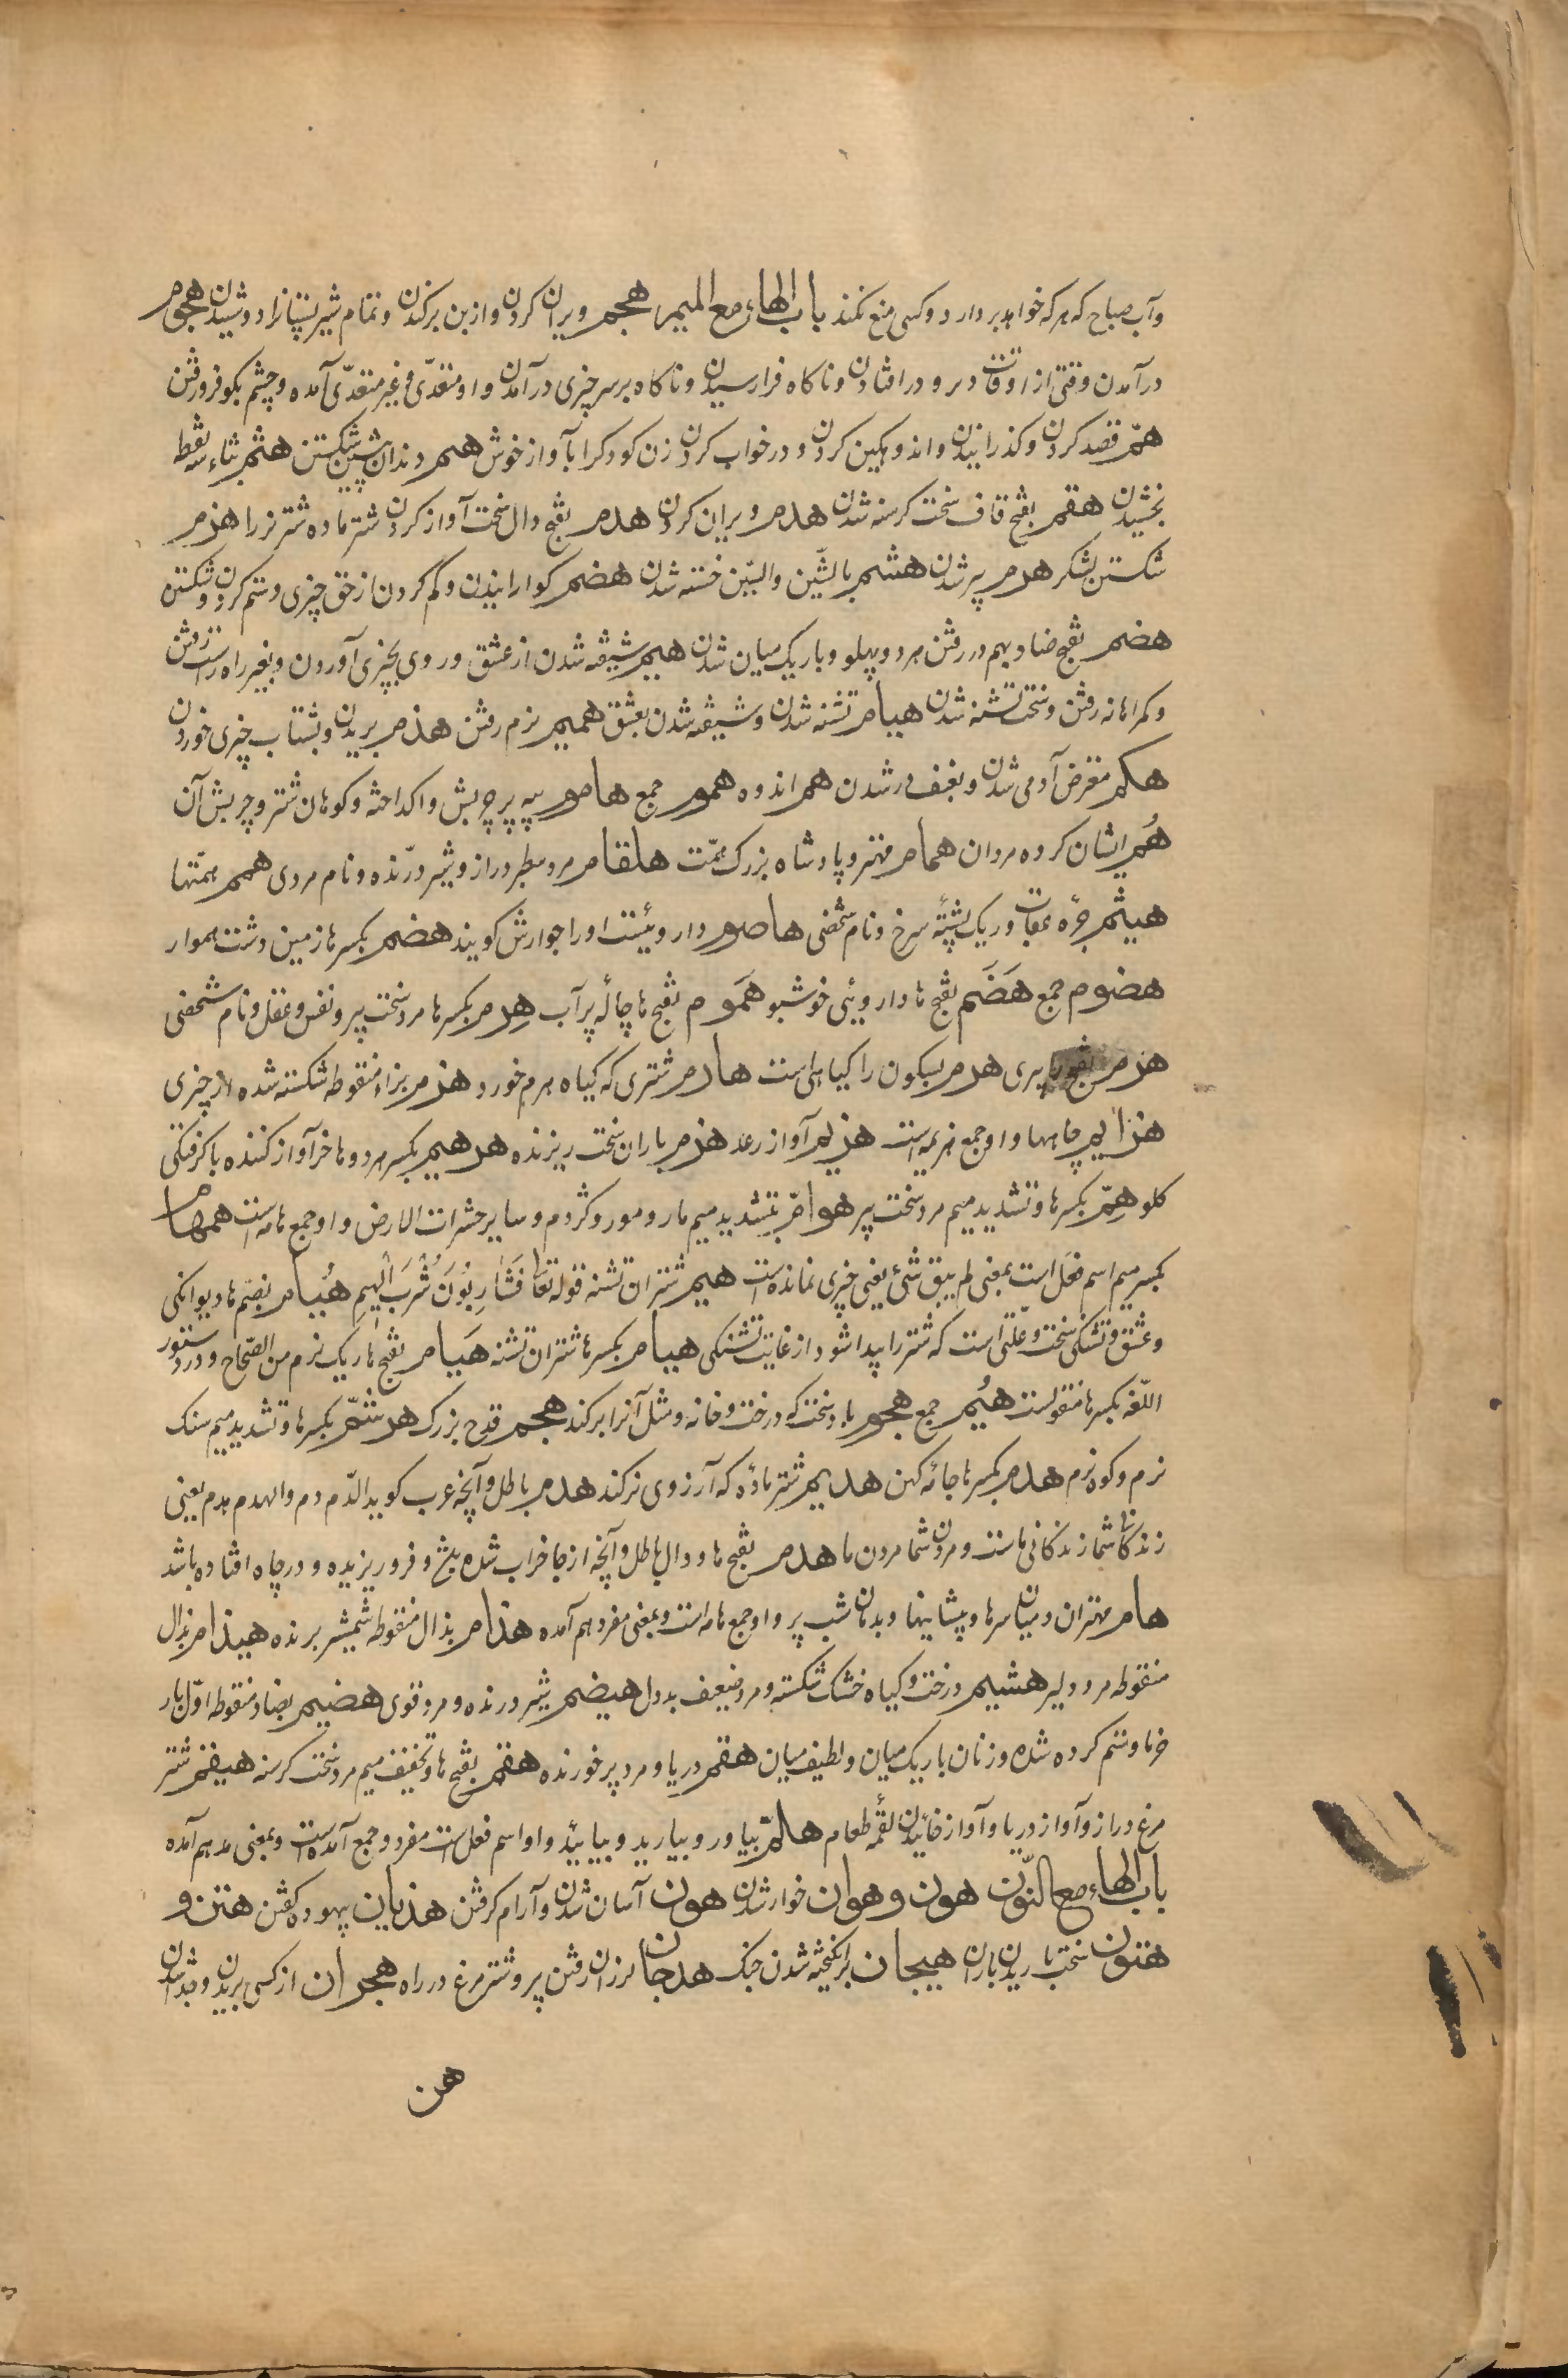 وآب صباح که هر که خواهد بردارد وکسی منع نکند باب الهاء مع المیم هجم ویران کردن وازبن برکندن وتمام شیر پستانرا دوشیدن هجوم
درآمدن وقتی از اوقات در و درافتادن وناکاه فرارسیدن وناکاه برسر چیزی درآمدن واو متعدّی وغیر متعدّی آمده وچشم بکو فرورفتن
همّ قصد کردن وکذرانیدن واندوهکین کردن ودرخواب کردن زن کودکرا بآواز خوش هتم دندان پیشین شکستن هثم بثاء سه نقطه
بخشیدن هقم بفتح قاف سخت کرسنه شدن هدم ویران کردن هدم بفتح دال سخت آواز کردن شتر ماده شتر نر را هزم
شکستن لشکر هرم پیر شدن هشم بالشّین والسّین خسته شدن هضم کوارانیدن وکم کردن از حق چیزی وستم کردن وشکستن
هضم بفتح ضاد بهم در رفتن هر دو پهلو وباریک میان شدن هیم شیفته شدن از عشق وروی بچیزی آوردن وبغیر راه راست رفتن
وکمراهانه رفتن وسخت تشنه شدن هیام تشنه شدن وشیفته شدن بعشق همیم نرم رفتن هذم بریدن وبشتاب چیزی خوردن
هکم متعرض آدمی شدن وبعنف در شدن هم اندوه هموم جمع هاموم پیه پر چربش واکداخته وکوهان شتر وچربش آن
هُم ایشان کروه مردان همام مهتر وپادشاه بزرک همّت هلقام مرد سطبر دراز وشیر درّنده ونام مردی همم همّتها
هیثم جوّه عقاب وریک پشتهٔ سرخ ونام شخصی هاضوم داروئیست اورا جوارش کویند هضم بکسر ها زمین دشت هموار
هضوم جمع هَضَم بفتح ها داروئی خوشبو هَموم بفتح ها چاهٔ پر آب هِرم بکسر ها مرد سخت پیر ونفس وعقل ونام شخصی
هرم بفتح را پیری هرم بسکون را کیاهی است هارم شتری که کیاه هرم خورد هزم بزاء منقوطه شکسته شده از چیزی
هزایم چاهها واو جمع هزیمه است هزیم آواز رعد هزم باران سخت ریزنده هرهیم بکسر هر دو ها خر آواز کننده باکرفتکی
کلو هِمّ بکسر ها وتشدید میم مرد سخت پیر هوامّ بتشدید میم مار ومور وکژدم وسایر حشرات الارض واو جمع هامه است همهام
بکسر میم اسم فعل است بمعنی لم یبق شئ یعنی چیزی نمانده است هیم شتران تشنه قوله تعا فَشَارِبُونَ شُرْبَ الْهِیمِ هُیام بضم ها دیوانکی
وعشق وتشنکی سخت وعلّتی است که شتر را پیدا شود از غایت تشنکی هیام بکسر ها شتران تشنه هَیام بفتح ها ریک نرم من الصّحاح ودر دستور
اللّغه بکسر ها منقولست هُیُم جمع هجوم باد سخت که درخت وخانه ومثل آنرا برکند هجم قدح بزرک هرشمّ بکسر ها وتشدید میم سنک
نرم وکوه نرم هدم بکسر ها جائهٔ کهن هدیم شتر مادّه که آرزوی نر کند هدم باطل وآنچه عرب کوید الدّم دم والهدم هدم یعنی
زندکانی شما زندکانی ماست ومردن شما مردن ما هدم بفتح ها ودال باطل وآنچه از جا خراب شده باشد وفرو ریزیده ودر چاه افتاده باشد
هام مهتران ومیان سرها وپیشانیها وبدنان شب پر واو جمع هامه است وبمعنی مفرد هم آمده هذام بذال منقوطه شمشیر برنده هیذام بذال
منقوطه مرد دلیر هشیم درخت وکیاه خشک شکسته ومرد ضعیف بددل هیضم شیر درنده ومرد قوی هضیم بضاد منقوطه اوّل بار
خرما وستم کرده شده وزنان باریک میان ولطیف میان هقم دریا ومرد پر خورنده هقم بفتح ها وتخفیف میم مرد سخت کرسنه هیقم شتر
مرغ دراز وآواز دریا وآواز خائیدن لقمهٔ طعام هلمّ بیاور وبیارید وبیایید واو اسم فعل است مفرد وجمع آمده است وبمعنی مد هم آمده
باب الهاء مع النّون هون وهوان خوار شدن هون آسان شدن وآرام کرفتن هذیان بیهوده کفتن هتن و
هتون سخت باریدن باران هیجان برانکیخته شدن جنک هدجان لرزان رفتن پیر وشتر مرغ در راه هجران از کسی بریدن وجدا شدن
هن